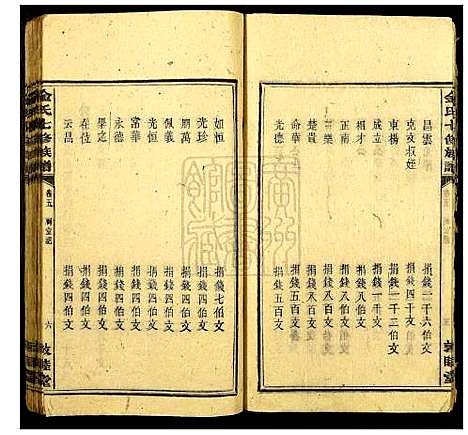 金氏七修族譜
昌雲 捐錢二千六伯文
克亥叔姪 捐錢四千文
東楊 捐錢一千二伯文
成立 捐錢一千文
相才 捐錢八百文
正南 捐錢八百文
樂 捐錢八百文
楚貴 捐錢八百文
命華 捐錢五百文
光德 捐錢五百文
敦睦堂
如恒 捐錢七伯文
光珍 捐錢四伯文
朋萬 捐錢四伯文
佩義 捐錢四伯文
光恒 捐錢四伯文
常華 捐錢四伯文
永德 捐錢四伯文
畢之 捐錢四伯文
在位 捐錢四伯文
云昌 捐錢四伯文
金氏七修族譜 卷五 六 敦睦堂